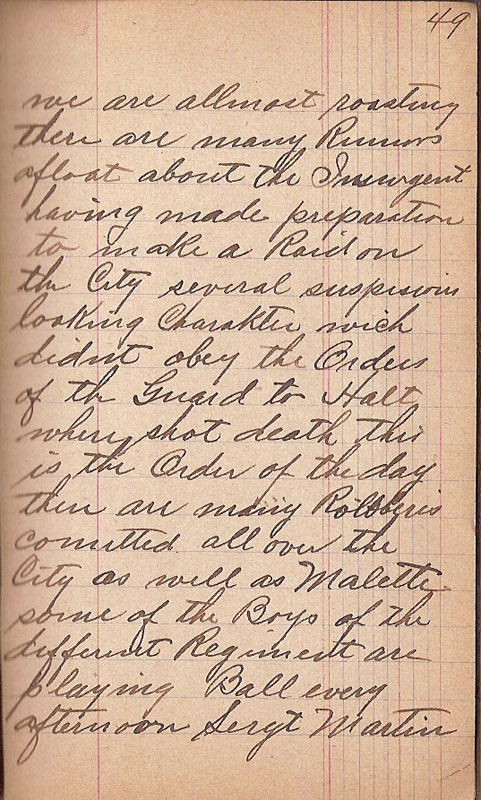 49
we are allmost roasting
there are many Rumors
afloat about the Insurgent
having made preparation
to make a Raid on
the City several suspision
looking Charakter wich
didnt obey the Orders
of the Guard to Halt
where shot death this
is the Order of the day
there are many Robberis
comitted all over the
City as well as Malette
some of the Boys of the
different Regiment are
playing Ball every
afternoon Sergt Martin